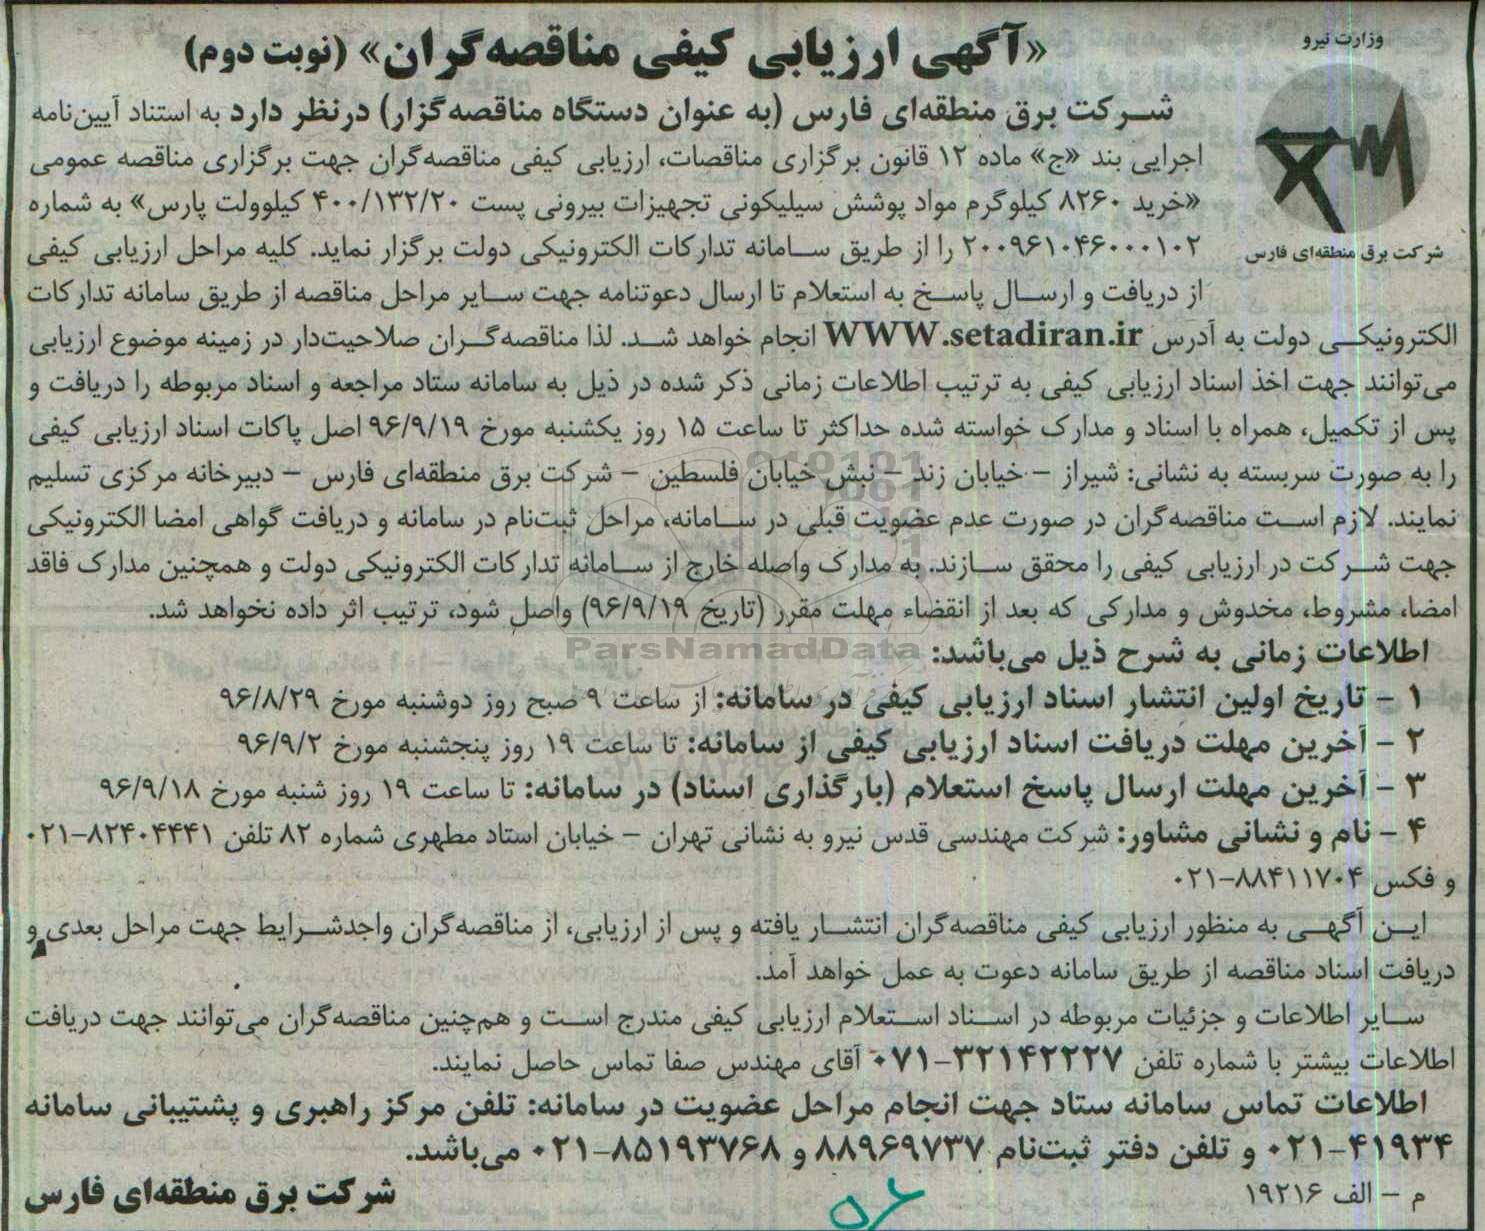 وزارت نیرو
شرکت برق منطقه‌ای فارس
«آگهی ارزیابی کیفی مناقصه‌گران» (نوبت دوم)
شرکت برق منطقه‌ای فارس (به عنوان دستگاه مناقصه‌گزار) درنظر دارد به استناد آیین‌نامه
اجرایی بند «ج» ماده ۱۲ قانون برگزاری مناقصات، ارزیابی کیفی مناقصه‌گران جهت برگزاری مناقصه عمومی
«خرید ۸۲۶۰ کیلوگرم مواد پوشش سیلیکونی تجهیزات بیرونی پست ۴۰۰/۱۳۲/۲۰ کیلوولت پارس» به شماره
۲۰۰۹۶۱۰۴۶۰۰۰۱۰۲ را از طریق سامانه تدارکات الکترونیکی دولت برگزار نماید. کلیه مراحل ارزیابی کیفی
از دریافت و ارسال پاسخ به استعلام تا ارسال دعوتنامه جهت سایر مراحل مناقصه از طریق سامانه تدارکات
الکترونیکی دولت به آدرس WWW.setadiran.ir انجام خواهد شد. لذا مناقصه‌گران صلاحیت‌دار در زمینه موضوع ارزیابی
می‌توانند جهت اخذ اسناد ارزیابی کیفی به ترتیب اطلاعات زمانی ذکر شده در ذیل به سامانه ستاد مراجعه و اسناد مربوطه را دریافت و
پس از تکمیل، همراه با اسناد و مدارک خواسته شده حداکثر تا ساعت ۱۵ روز یکشنبه مورخ ۹۶/۹/۱۹ اصل پاکات اسناد ارزیابی کیفی
را به صورت سربسته به نشانی: شیراز – خیابان زند – نبش خیابان فلسطین – شرکت برق منطقه‌ای فارس – دبیرخانه مرکزی تسلیم
نمایند. لازم است مناقصه‌گران در صورت عدم عضویت قبلی در سامانه، مراحل ثبت‌نام در سامانه و دریافت گواهی امضا الکترونیکی
جهت شرکت در ارزیابی کیفی را محقق سازند. به مدارک واصله خارج از سامانه تدارکات الکترونیکی دولت و همچنین مدارک فاقد
امضا، مشروط، مخدوش و مدارکی که بعد از انقضاء مهلت مقرر (تاریخ ۹۶/۹/۱۹) واصل شود، ترتیب اثر داده نخواهد شد.
ParsNamadData
اطلاعات زمانی به شرح ذیل می‌باشد:
۱ – تاریخ اولین انتشار اسناد ارزیابی کیفی در سامانه: از ساعت ۹ صبح روز دوشنبه مورخ ۹۶/۸/۲۹
۲ – آخرین مهلت دریافت اسناد ارزیابی کیفی از سامانه: تا ساعت ۱۹ روز پنجشنبه مورخ ۹۶/۹/۲
۳ – آخرین مهلت ارسال پاسخ استعلام (بارگذاری اسناد) در سامانه: تا ساعت ۱۹ روز شنبه مورخ ۹۶/۹/۱۸
۴ – نام و نشانی مشاور: شرکت مهندسی قدس نیرو به نشانی تهران – خیابان استاد مطهری شماره ۸۲ تلفن ۸۲۴۰۴۴۴۱-۰۲۱
و فکس ۸۸۴۱۱۷۰۴-۰۲۱
این آگهی به منظور ارزیابی کیفی مناقصه‌گران انتشار یافته و پس از ارزیابی، از مناقصه‌گران واجدشرایط جهت مراحل بعدی و
دریافت اسناد مناقصه از طریق سامانه دعوت به عمل خواهد آمد.
سایر اطلاعات و جزئیات مربوطه در اسناد استعلام ارزیابی کیفی مندرج است و هم‌چنین مناقصه‌گران می‌توانند جهت دریافت
اطلاعات بیشتر با شماره تلفن ۳۲۱۴۲۲۲۷-۰۷۱ آقای مهندس صفا تماس حاصل نمایند.
اطلاعات تماس سامانه ستاد جهت انجام مراحل عضویت در سامانه: تلفن مرکز راهبری و پشتیبانی سامانه
۴۱۹۳۴-۰۲۱ و تلفن دفتر ثبت‌نام ۸۸۹۶۹۷۳۷ و ۸۵۱۹۳۷۶۸-۰۲۱ می‌باشد.
م – الف ۱۹۲۱۶
شرکت برق منطقه‌ای فارس